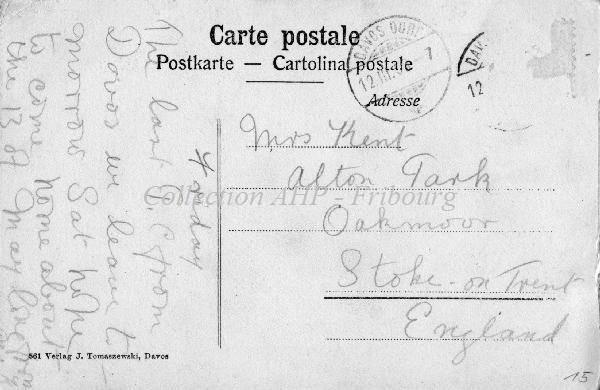 Carte postale
Postkarte — Cartolina postale
DAVOS DORF
12.III.
7
DAV
12
Adresse
Mrs Kent
Alton Park
Oakmoor
Stoke-on-Trent
England
Friday
The last P.C from
Davos we leave to-
morrow Sat hope
to come home about
the 13th May love from
Collection AHP - Fribourg
561 Verlag J. Tomaszewski, Davos
15